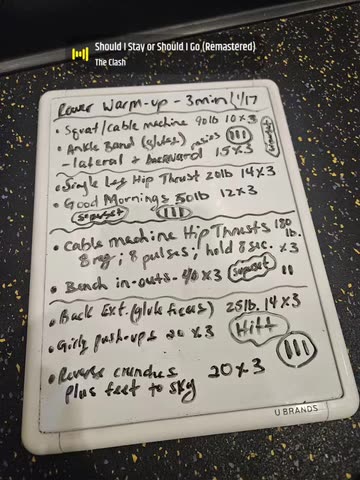 Should I Stay or Should I Go (Remastered)
The Clash
Rower Warm-up - 3min 1/17
• Squat/cable machine 90lb 10x3
• Ankle Band (glutes)
- lateral + backward 15x3 superset
• Single Leg Hip Thrust 20lb 14x3
• Good Mornings 50lb 12x3
superset III
• Cable machine Hip Thrusts 180 lb.
8 reg; 8 pulses; hold 8 sec. x3
• Bench in-outs - 40x3 superset II
• Back Ext. (glute focus) 25lb. 14x3
• Girly push-ups 20 x3 Hiit
• Reverse crunches 20x3 III
plus feet to sky
U BRANDS